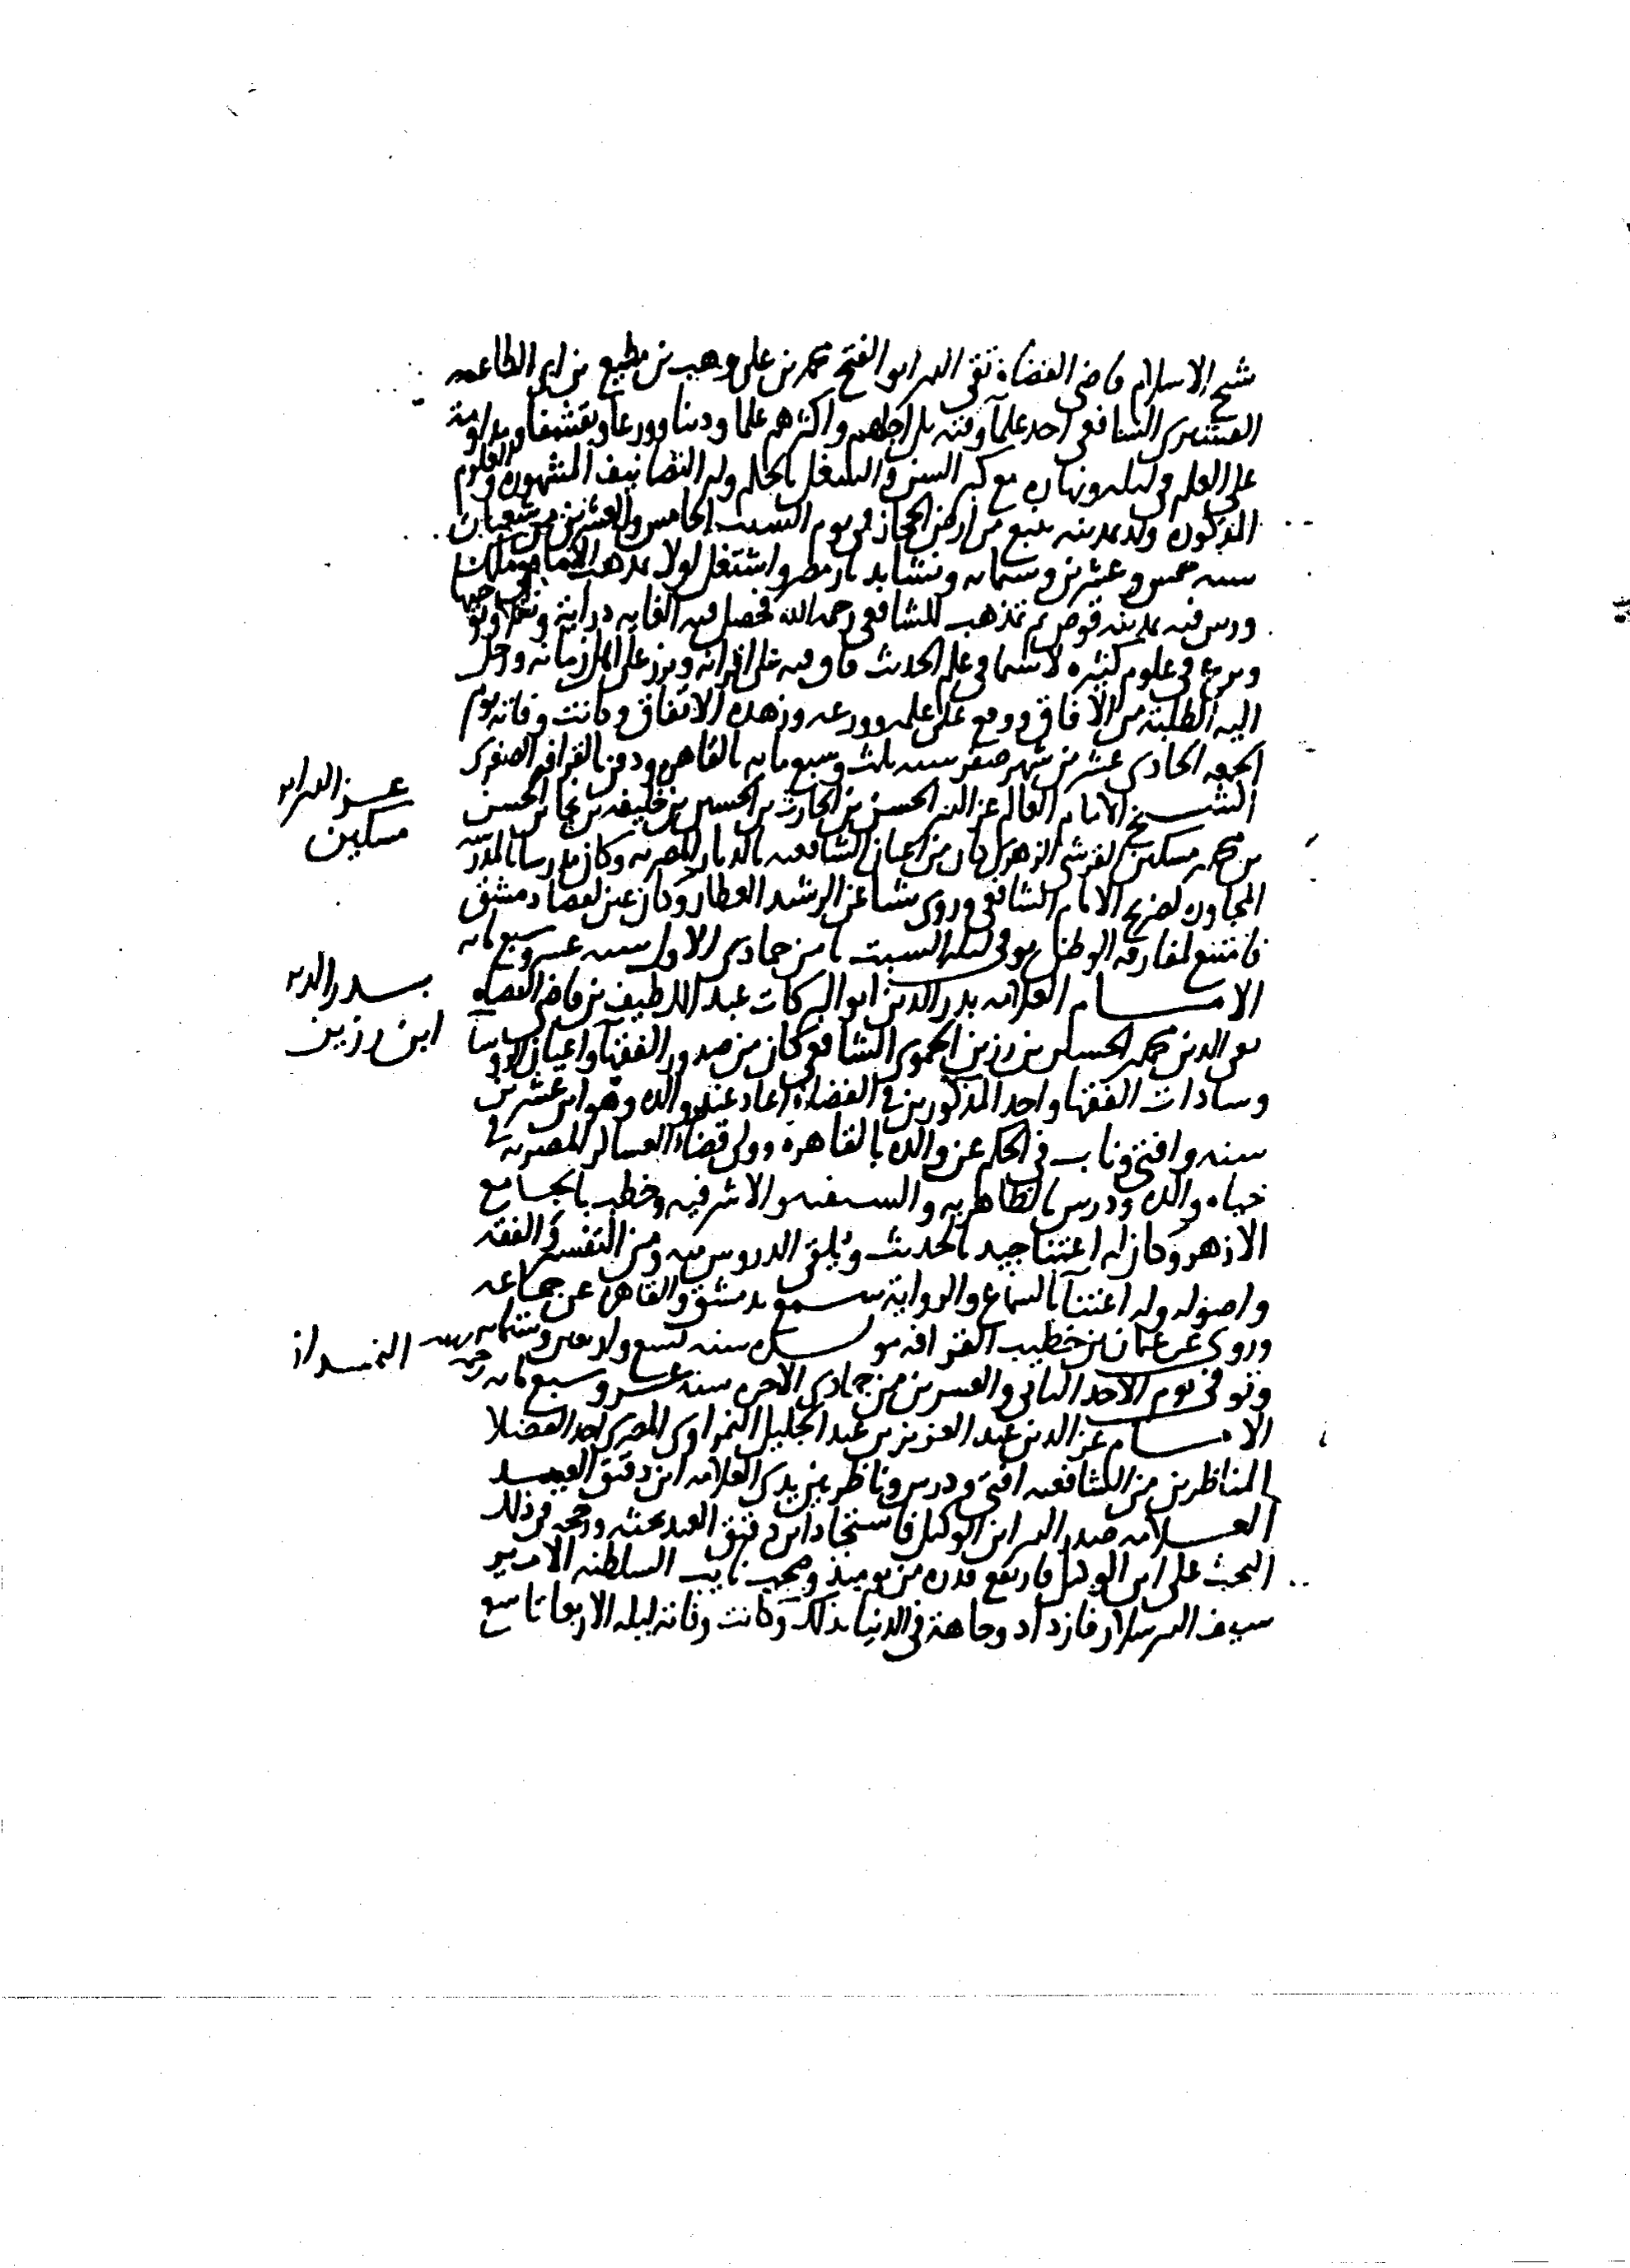 شيخ الاسلام قاضى القضاة تقى الدين ابو الفتح محمد بن على وهب بن مطيع بن ابى الطاعه
القشيرى الشافعى احد علمآ وقته بل اجلهم واكثرهم علما ودينا وورعا وتقشفا ومداومة
على العلم فى ليله ونهاره مع كبر السن والشغل بالحكم وله التصانيف المشهوره والعلوم
المذكوره ولد بمدينه ينبع من ارض الحجاز فى يوم السبت الخامس والعشرين من شعبان
سنه خمس وعشرين وستمايه ونشا بديار مصر واشتغل اولا بمذهب الامام مالك
ودرس فيه بمدينه قوص ثم تمذهب للشافعى رحمه الله فحصل فيه الغايه دراية ونقلا
وبرع فى علوم كثيره لا سيما فى علم الحديث فاق فيه على اقرانه وبرز على اهل زمانه ورحل
اليه الطلبة من الآفاق ووقع على علمه وورعه وزهده الاتفاق وكانت وفاته يوم
الجمعه الحادى عشر من شهر صفر سنه ثلث وسبع مايه بالقاهره ودفن بالقرافه الصغرى
عز الدين ابن
مسكين
الشيخ الامام العالم عز الدين الحسن بن الحارث بن الحسين بن خليفه بن نجا بن الحسن
بن محمد مسكين القرشى الزهرى كان من اعيان الشافعيه بالديار المصريه وكان مدرسا بالمدرسه
المجاوره لضريح الامام الشافعى وروى شيا عن الرشيد العطار وكان عين لقضا دمشق
فامتنع لمفارقه الوطن توفى ليله السبت ثامن جمادى الاول سنه عشر وسبع مايه
بدر الدين
ابن رزين
الامام العلامه بدر الدين ابو البركات عبد اللطيف بن قاضى القضاه
تقى الدين محمد الحسين بن رزين الحموى الشافعى كان من صدور الفقهآ واعيان الروسآ
وسادات الفقها واحد المذكورين فى الفضلاء اعاد عند والده وهو ابن عشرين
سنه وافتى وناب فى الحكم عن والده بالقاهره وولى قضاء العساكر المصريه فى
حياه والده ودرس بالظاهريه والسيفيه والاشرفيه وخطب بالجامع
الازهر وكان له اعتنا جيد بالحديث ويلقى الدروس منه ومن التفسير والفقه
واصوله وله اعتنآ بالسماع والرواية سمع بدمشق والقاهره عن جماعه
وروى عن عثمان بن خطيب القرافه مولده سنه تسع واربعين وستمايه
وتوفى يوم الاحد الثانى والعشرين من جمادى الاخره سنة عشر وسبع مايه
الامام عز الدين عبد العزيز بن عبد الجليل النمراوى المصرى احد الفضلا
المناظرين من الشافعيه افتى ودرس وناظر بين يدى العلامه ابن دقيق العيد
العلامه صدر الدين ابن الوكيل فاستجاد ابن دقيق العيد بحثه ورجحه فى ذلك
البحث على ابن الوكيل فارتفع قدره من يوميذ وصحب نايب السلطنه الامير
سيف الدين سلار فازداد وجاهة فى الدنيا بذلك وكانت وفاته ليله الاربعا تاسع